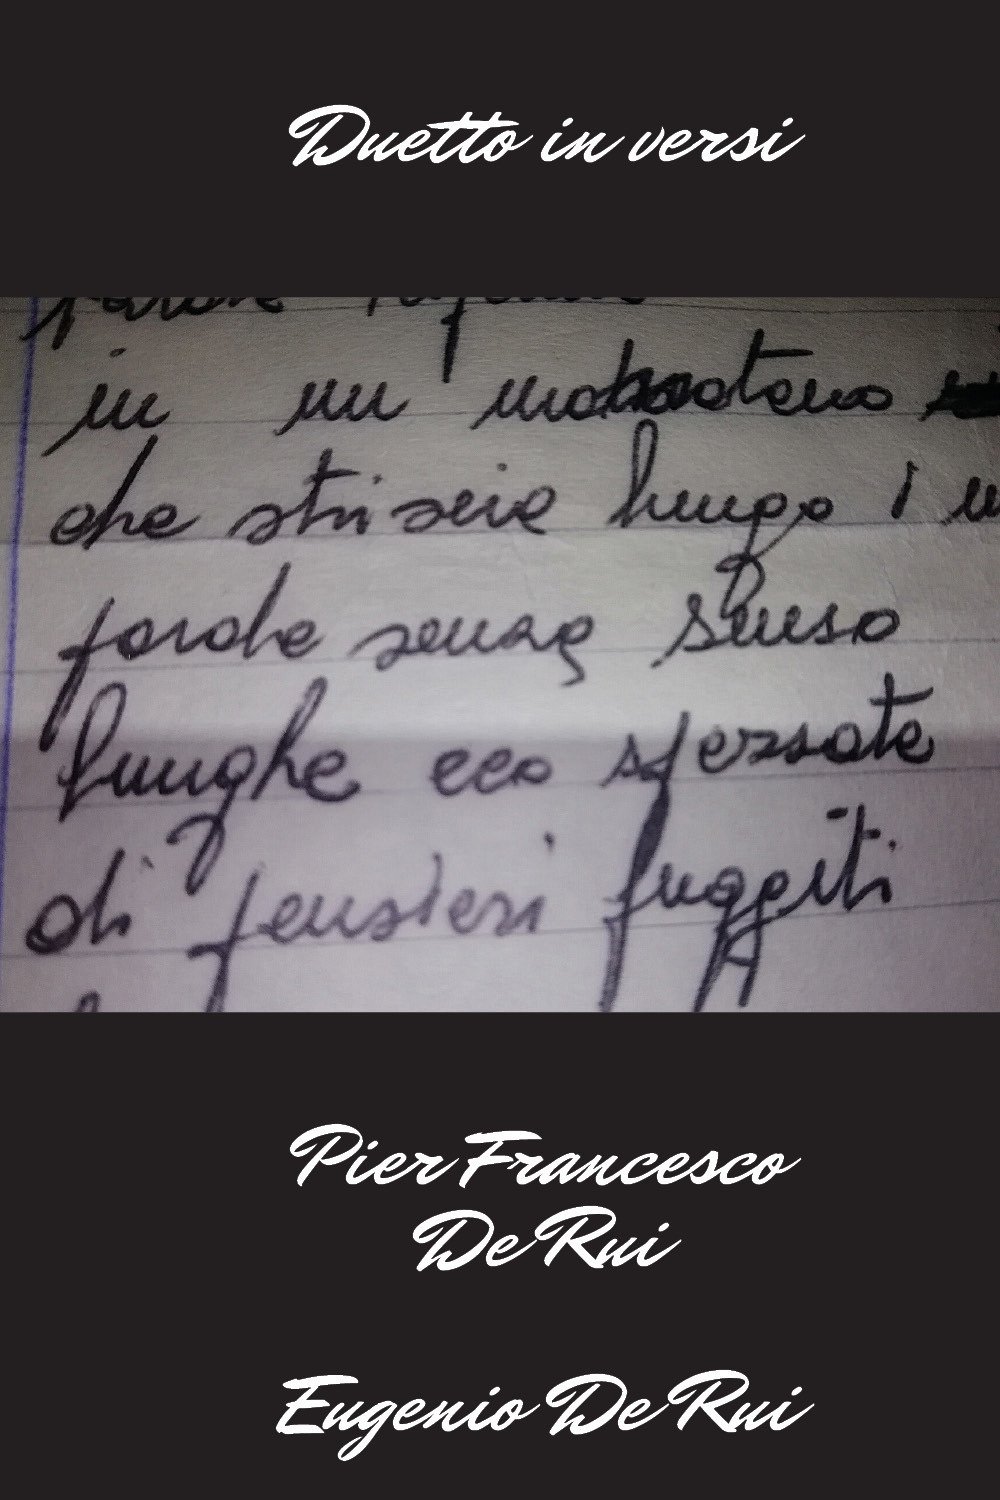 Duetto in versi
parole
in un
che striscia lungo i
parole senza senso
lunghe eco sferzate
di pensieri fuggiti
Pier Francesco
De Rui
Eugenio De Rui